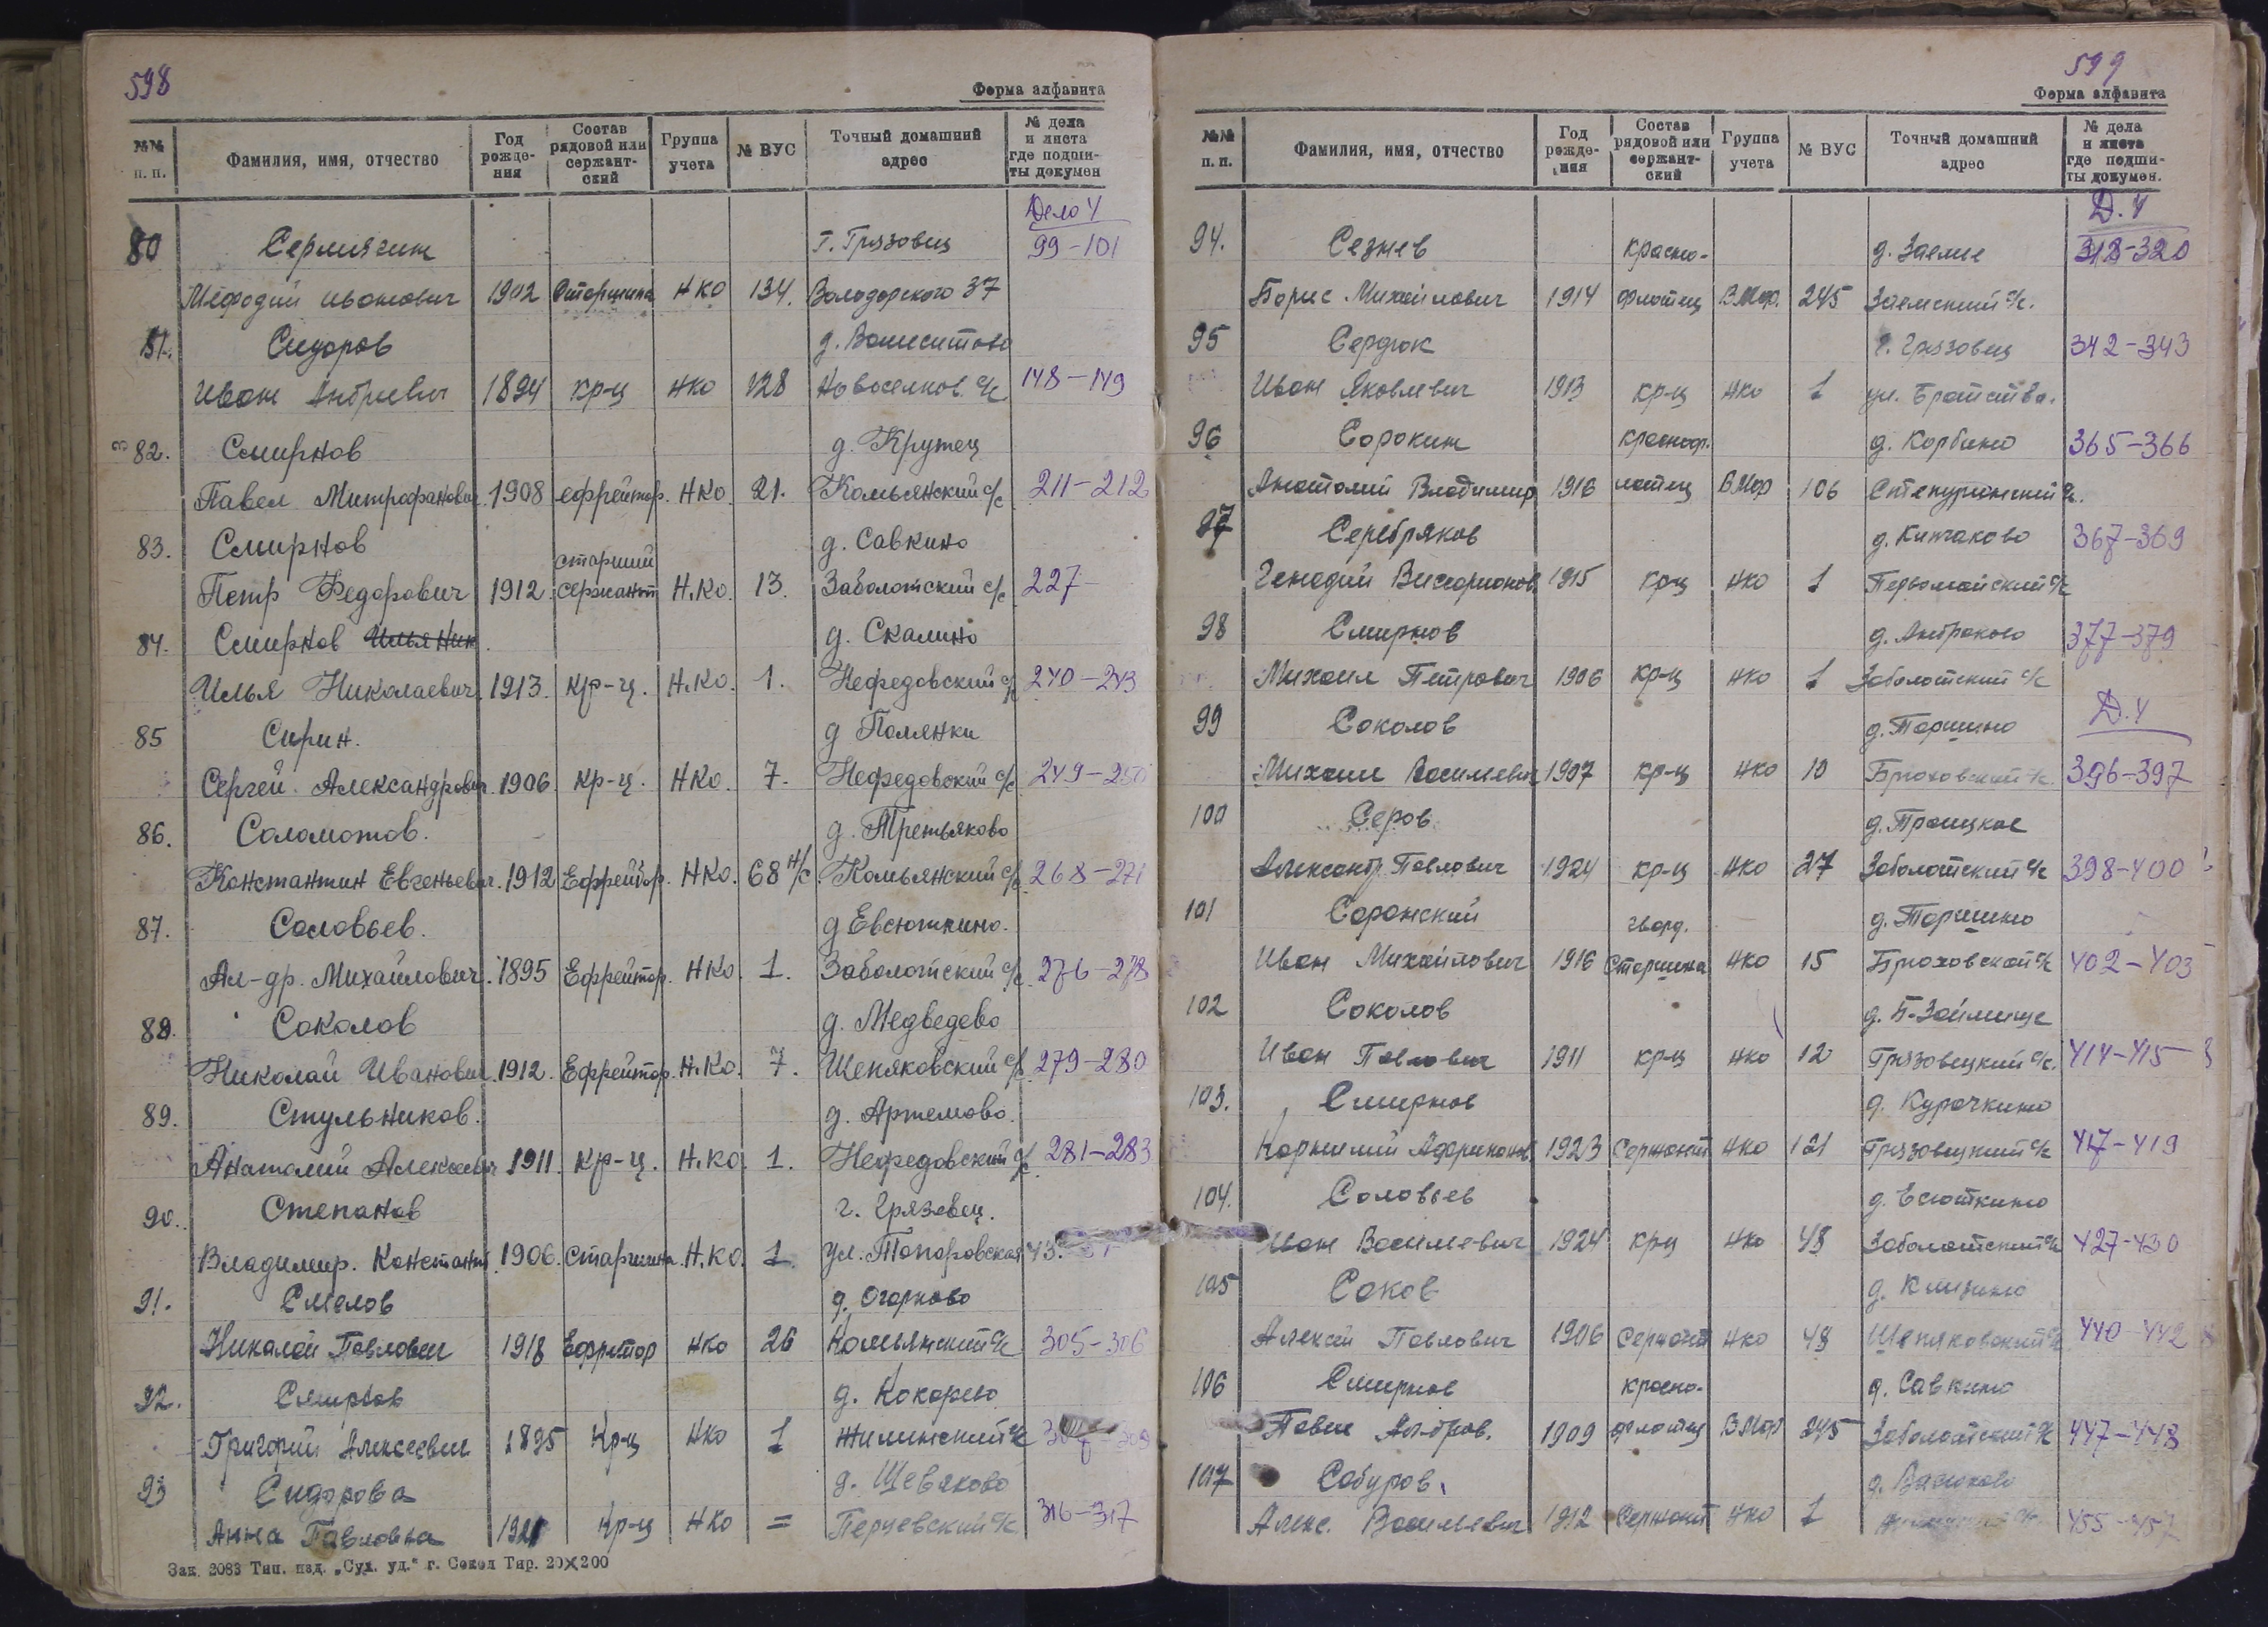 598
Форма алфавита
№№ п. п. Фамилия, имя, отчество Год рожде-ния Состав рядовой или сержант-ский Группа учета № ВУС Точный домашний адрес № дела и листа где подши-ты докумен
Дело 4
80 Сермягин г. Грязовец 99-101
Мефодий Иванович 1902 Старшина НКО 134. Володарского 37
81. Сидоров д.
Иван Андреевич 1894 кр-ц НКО 128 Новоселков. с/с 148-149
82. Смирнов д. Крутец
Павел Митрофанович. 1908 ефрейтор. НКО. 21. Комьянский с/с 211-212
83. Смирнов старший д. Савкино
Петр Федорович 1912. сержант Н.Ко. 13. Заболотский с/с 227-
84. Смирнов Илья Ник д. Скалино
Илья Николаевич. 1913. кр-ц. Н.Ко. 1. Нефедовский с/с 240-243
85 Сирин. д Полянки
Сергей Александрович. 1906. кр-ц. НКО. 7. Нефедовский с/с 249-250
86. Соломотов. д. Третьяково
Константин Евгеньевич. 1912 Ефрейтор. НКО. 68 н/с. Комьянский с/с 268-271
87. Соловьев. д Евсюткино.
Ал-др. Михайлович. 1895 Ефрейтор. НКО 1. Заболотский с/с. 276-278
88. Соколов д. Медведево
Николай Иванович. 1912. Ефрейтор. Н.Ко. 7. Шепяковский с/с 279-280
89. Стульников. д. Артемово.
Анатолий Алексеевич 1911. кр-ц. Н.КО. 1. Нефедовский с/с 281-283
90. Степанов г. Грязовец.
Владимир. Констант. 1906. Старшина. Н.КО. 1. ул. Топоровская 43.
91. Смелов д. Огарково
Николай Павлович 1918 Ефрейтор НКО 26 Комьянский с/с 305-306
92. Смирнов д. Кокорево
Григорий Алексеевич 1895 Кр-ц НКО 1 Жилинский с/с
93 Сидорова д. Шевяково
Анна Павловна 1921 Кр-ц НКО = Перцевский с/с 316-317
Зак. 2083 Тип. изд. „Сух. уд.“ г. Сокол Тир. 20×200
599
Форма алфавита
№№ п. п. Фамилия, имя, отчество Год рожде-ния Состав рядовой или сержант-ский Группа учета № ВУС Точный домашний адрес № дела и листа где подши-ты докумен.
Д. 4
94. Сезнев красно- д. Заемье 318-320
Борис Михайлович 1914 флотец В.Мор. 245 Заемский с/с.
95 Сердюк г. Грязовец 342-343
Иван Яковлевич 1913 кр-ц НКО 1 ул. Братства.
96 Сорокин краснофл. д. Корбино 365-366
Анатолий Владимир 1916 лотец ВМор 106 Степуринский с/с.
97 Серебряков д. 367-369
Генадий Виссарионов. 1915 кр-ц НКО 1 Первомайский с/с
98 Смирнов д. 377-379
Михаил Петрович 1906 кр-ц НКО 1 Заболотский с/с
Д. 4
99 Соколов д. Паршино
Михаил Васильевич 1907 кр-ц НКО 10 Брюховский с/с. 396-397
100 Серов д. Троицкое
Александр Павлович 1924 кр-ц НКО 27 Заболотский с/с 398-400
101 Саранский гвард. д. Паршино
Иван Михайлович 1916 Старшина НКО 15 Брюховской с/с 402-403
102 Соколов д. Б-Займище
Иван Павлович 1911 кр-ц НКО 12 Грязовецкий с/с. 414-415
103. Смирнов д. Курочкино
Корнилий Африканов. 1923 Сержант НКО 121 Грязовецкий с/с 417-419
104. Соловьев д. Евсюткино
Иван Васильевич 1924 кр-ц НКО 48 Заболотский с/с 427-430
105 Соков д.
Алексей Павлович 1906 Сержант НКО 48 Шепяковский с/с 440-442
106 Смирнов красно- д. Савкино
Павел Алдров. 1909 флотец В.Мор 245 Заболотский с/с 447-448
107 Сабуров. д.
Алекс. Васильевич 1912 Сержант НКО 1 455-457